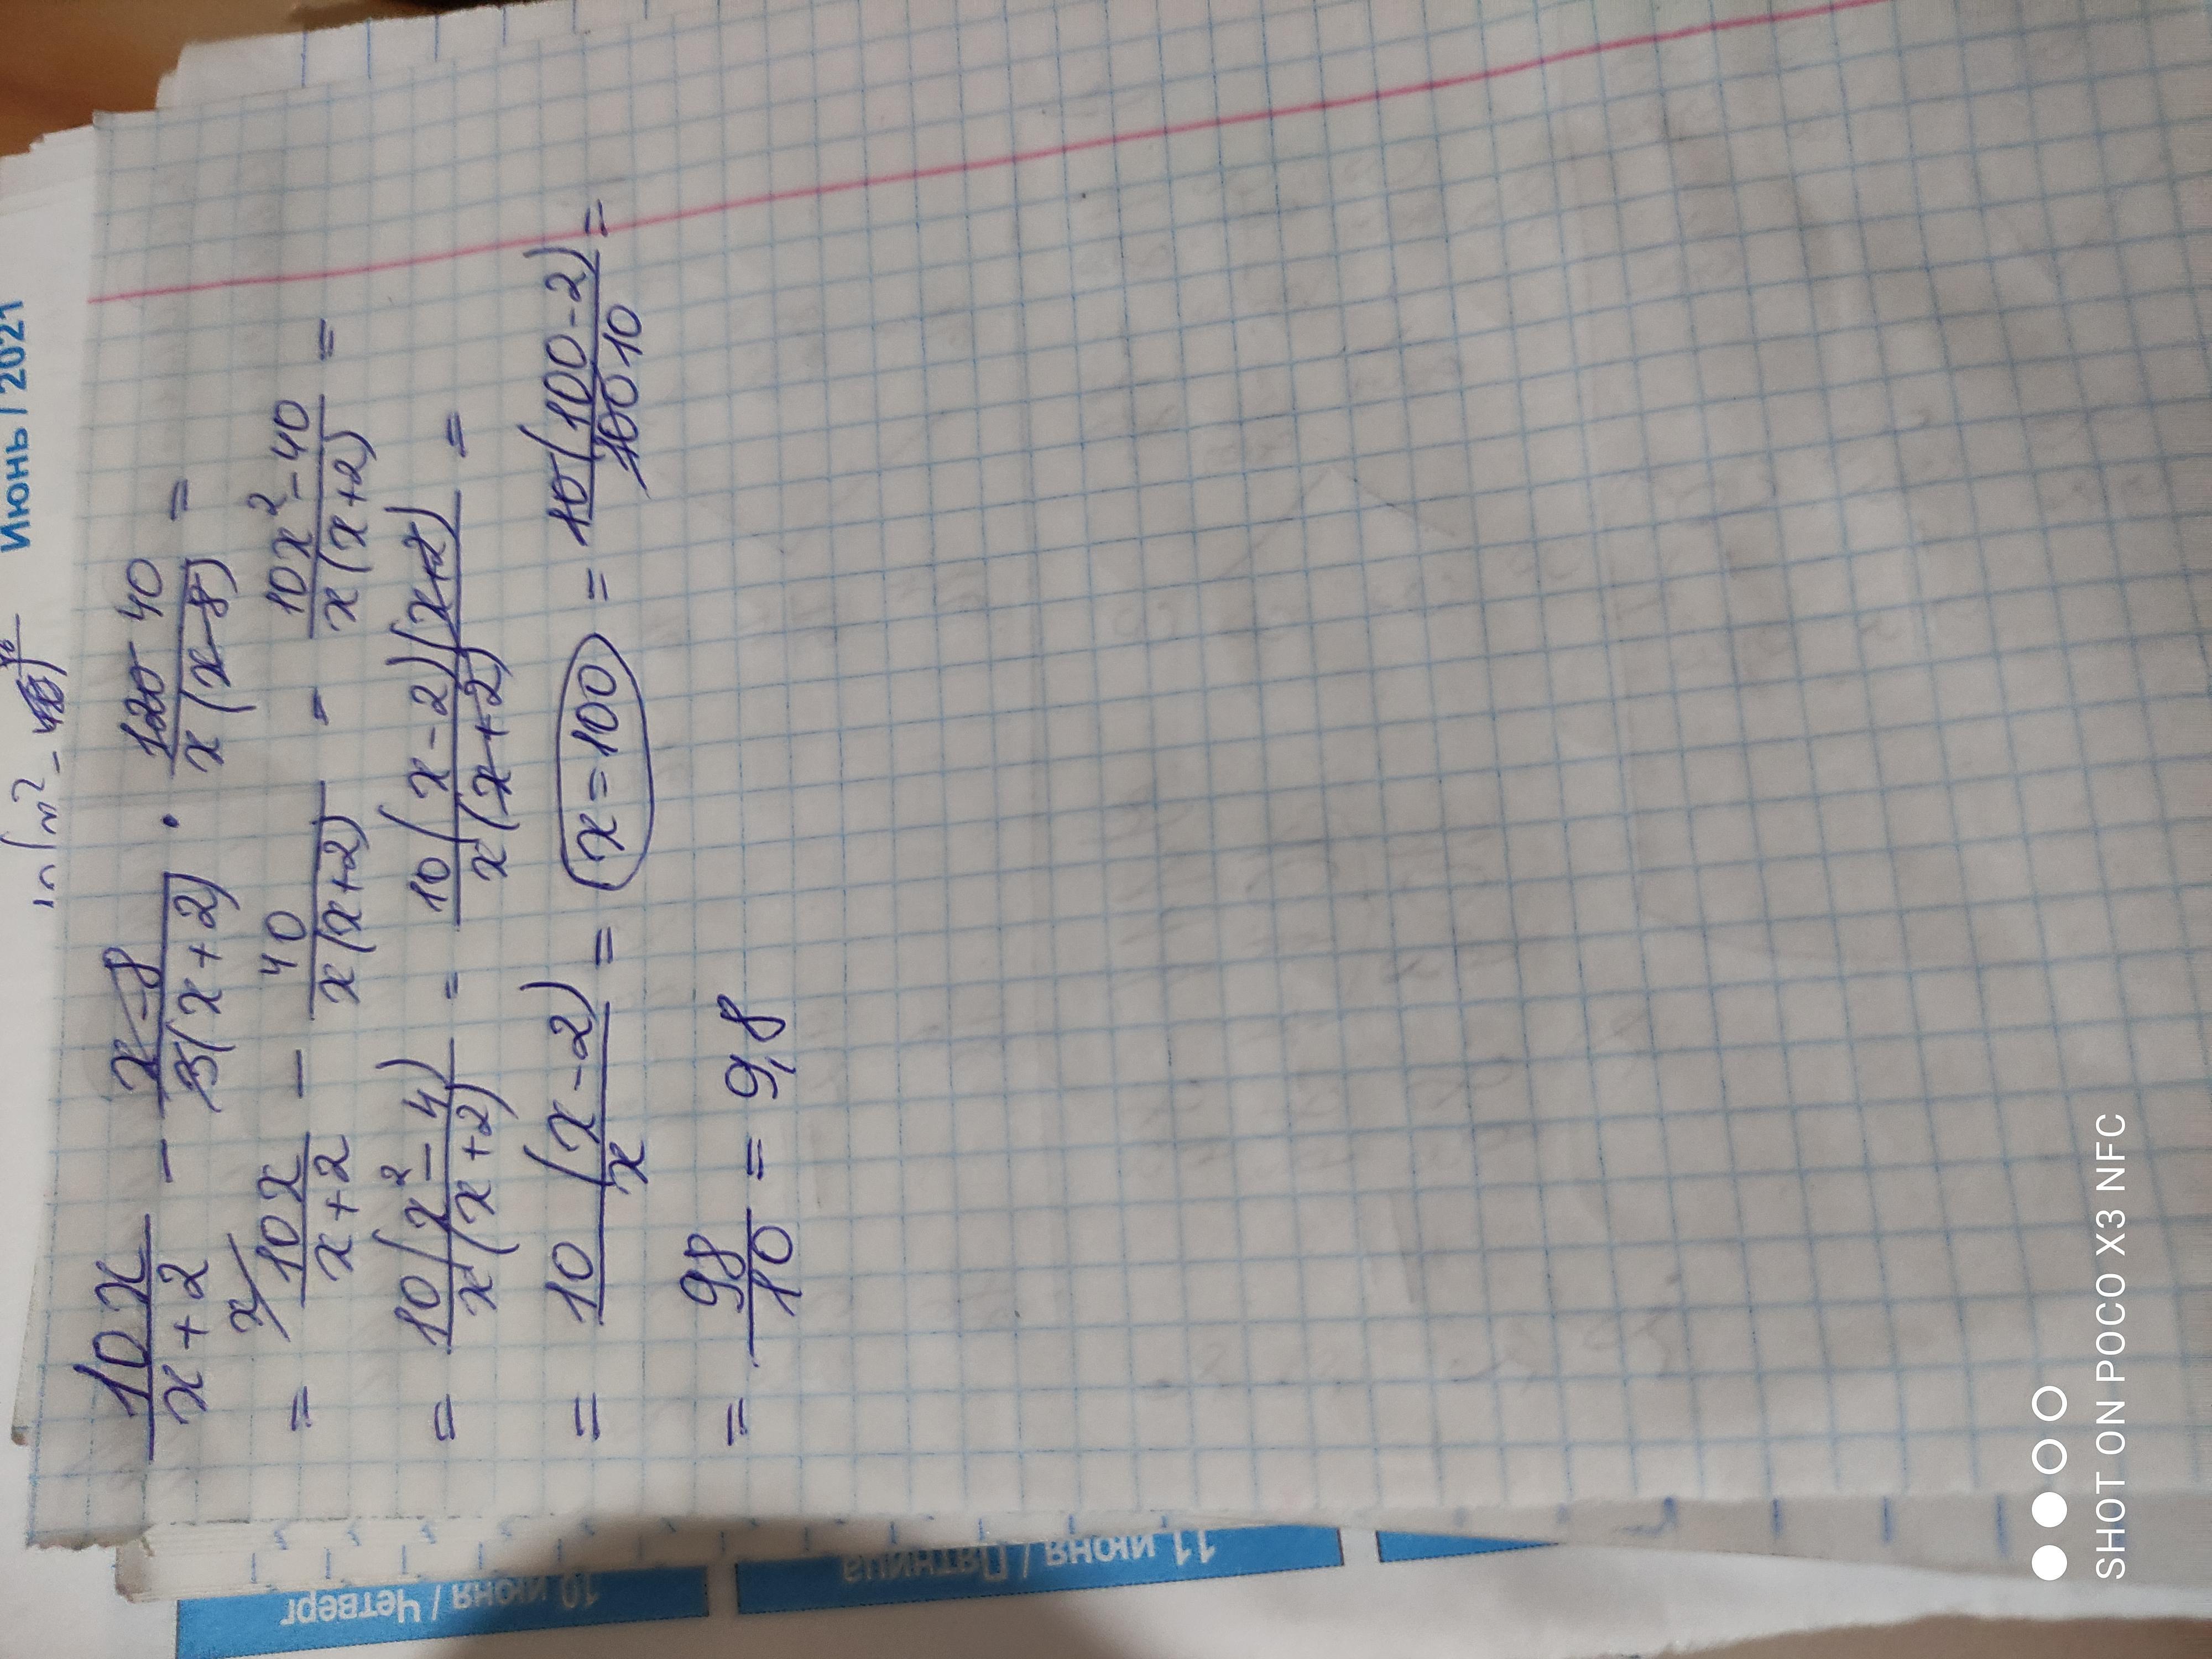 Июнь / 2021
10x/(x+2) − (x−8)/(3(x+2)) · 120 40/(x(x−8)) =
= x 10x/(x+2) − 40/(x(x+2)) = (10x² − 40)/(x(x+2)) =
= 10(x² − 4)/(x(x+2)) = 10(x−2)(x+2)/(x(x+2)) =
= 10(x−2)/x = x = 100 = 10(100−2)/100 10 =
= 98/10 = 9,8
10 июня / Четверг
11 июня / Пятница
SHOT ON POCO X3 NFC